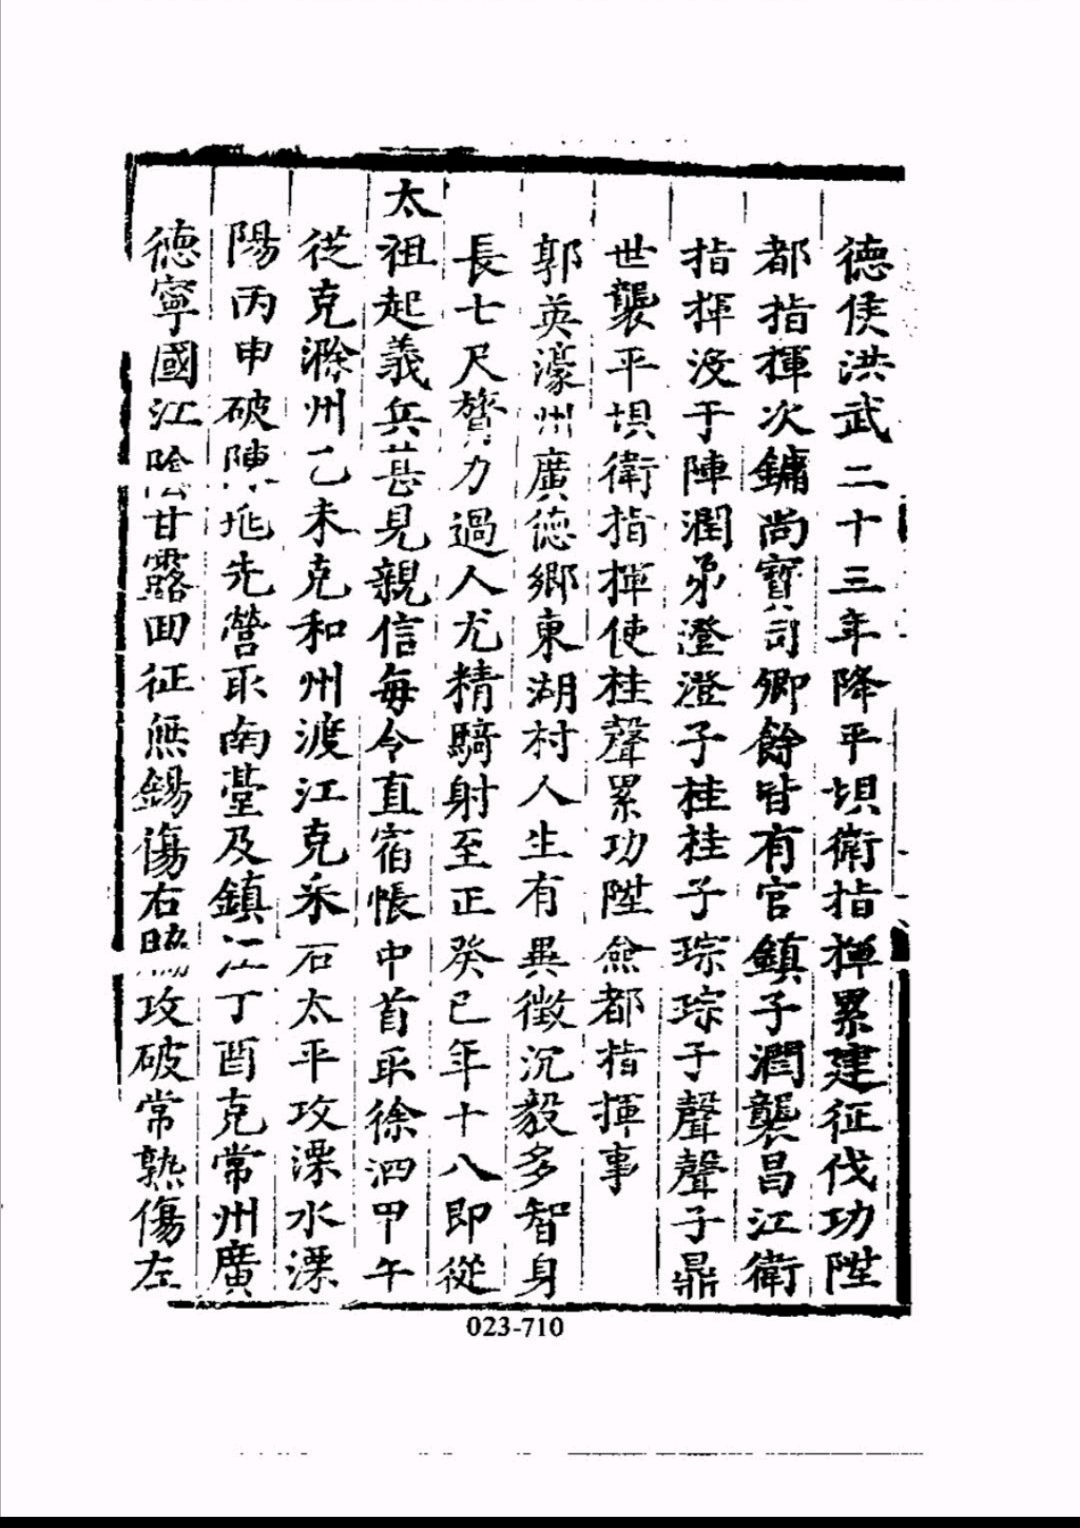 德侯洪武二十三年降平垻衛指揮累建征伐功陞
都指揮次鏞尚寳司卿餘皆有官鎮子潤襲昌江衛
指揮没于陣潤弟澄澄子桂桂子琮琮子聲聲子鼎
世襲平垻衛指揮使桂聲累功陞僉都指揮事
郭英濠州廣德鄉東湖村人生有異徵沉毅多智身
長七尺膂力過人尤精騎射至正癸巳年十八即從
太祖起義兵甚見親信每令直宿帳中首取徐泗甲午
從克滁州乙未克和州渡江克采石太平攻溧水溧
陽丙申破陳埜先營取南臺及鎮江丁酉克常州廣
德寧國江陰甘露回征無錫傷右脇攻破常熟傷左
023-710